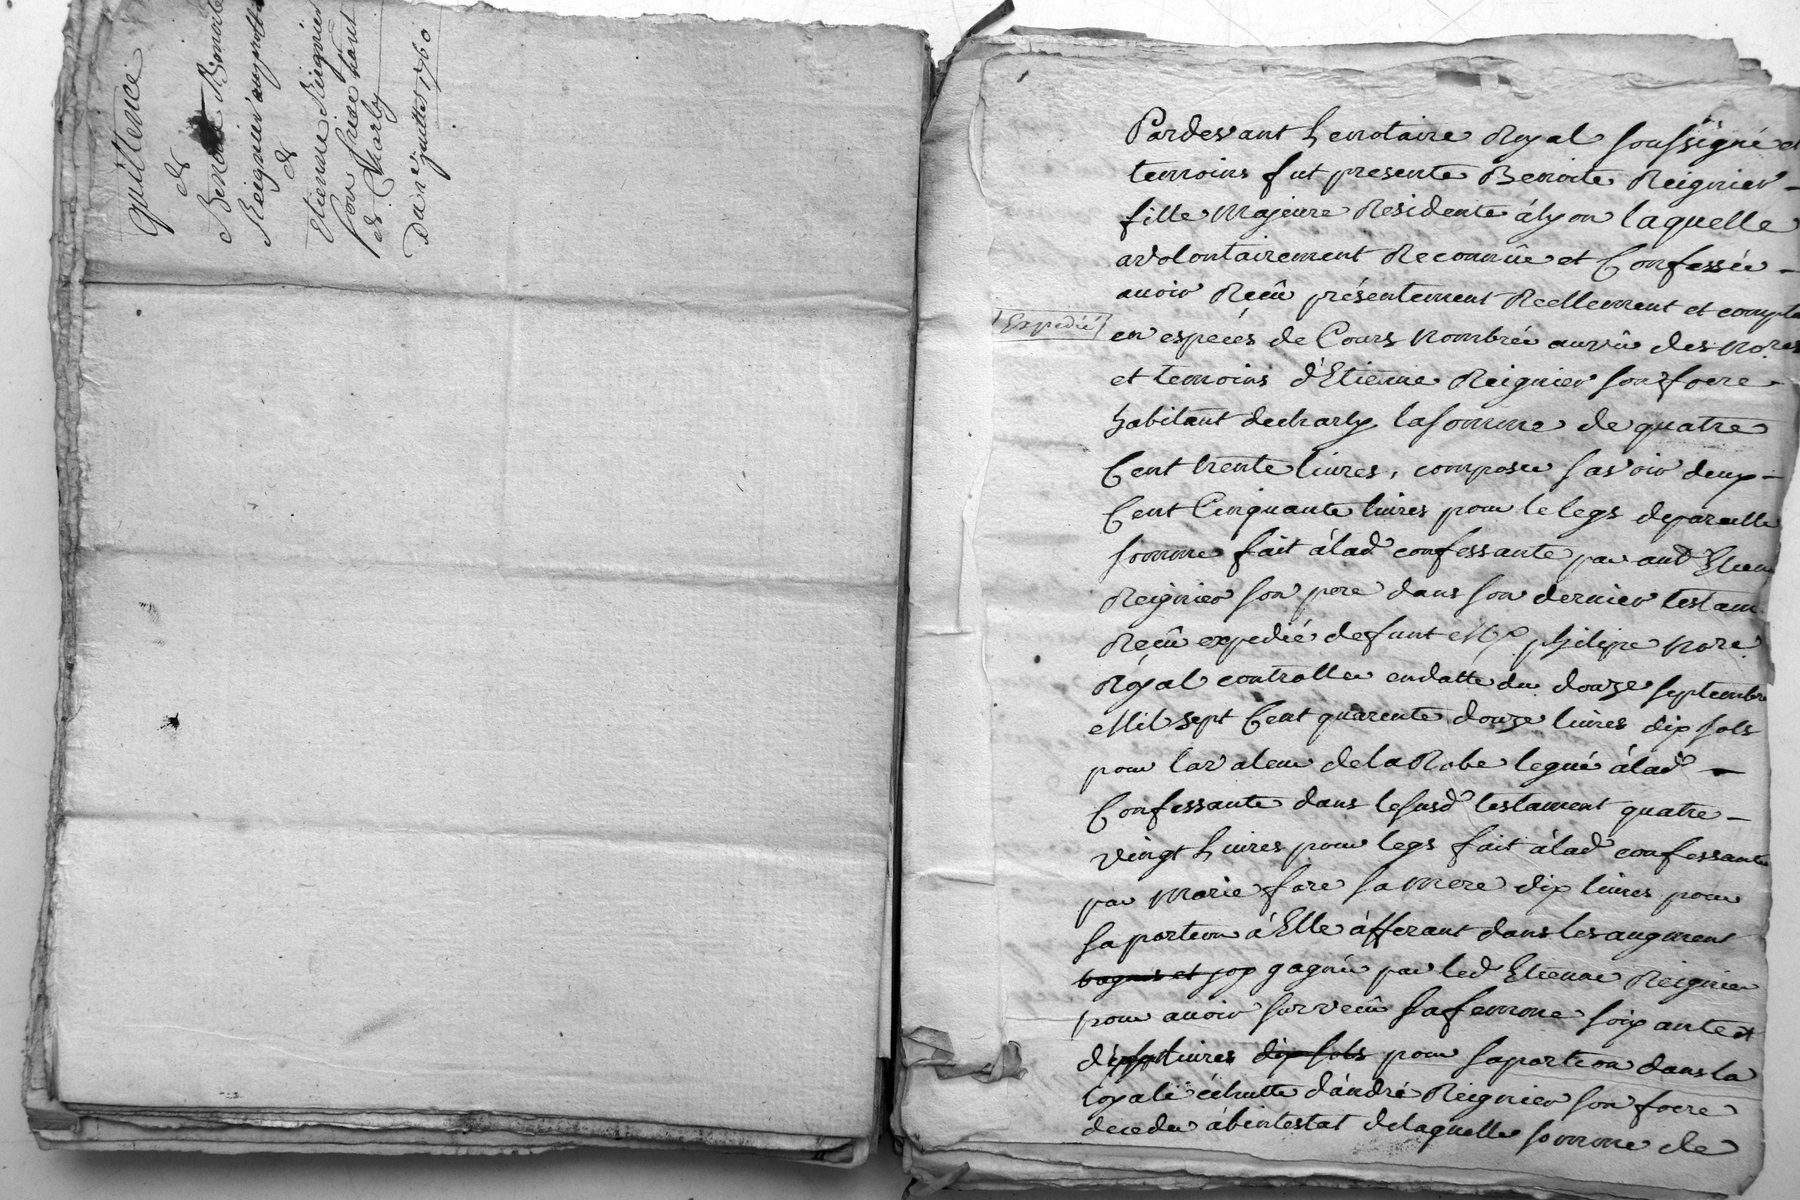 quittence
de
Benoite Benoite
Reignier au proffit
de
Etienne Reignier
son frere habitant
de Charly
Du juillet 1760
Expedié
Pardevant Le notaire Royal soussigné et
temoins fut presente Benoite Reignier
fille Majeure Residente à lyon laquelle
a volontairement Reconnüe et Confessée
avoir Reçû présentement Reellement et compta
en especes de Cours Nombrée au vû des No.res
et temoins d'Etienne Reignier son frere
habitant de charly la somme de quatre
Cent trente livres, composée savoir deux
Cent Cinquante livres pour le legs de pareille
somme fait à lad confessante par aud Etien
Reignier son pere dans son dernier testam
Reçû expedié defunt M.e philipe No.re
Royal controllé en datte du douze septembre
Mil sept Cent quarente douze livres dix sols
pour la valeur de la Robe legué à lad
Confessante dans le susd testament quatre
vingt Livres pour legs fait à lad confessante
par Marie fore sa Mere dix livres pour
sa portion à Elle afferant dans les augment
bagues et jox gagnée par led Etienne Reignier
pour avoir survecû sa femme soixante et
livres dix sols pour sa portion dans la
loyale échutte d'andré Reignier son frere
decedé abintestat de laquelle somme de